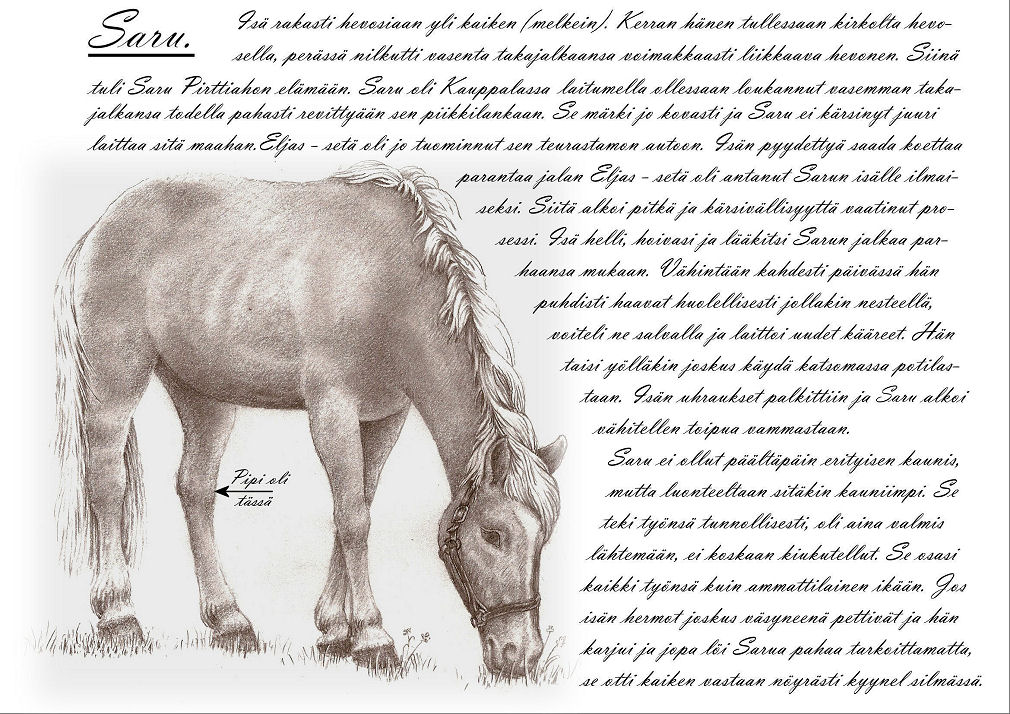 Saru.
Isä rakasti hevosiaan yli kaiken (melkein). Kerran hänen tullessaan kirkolta hevo-
sella, perässä nilkutti vasenta takajalkaansa voimakkaasti liikkaava hevonen. Siinä
tuli Saru Pirttiahon elämään. Saru oli Kauppalassa laitumella ollessaan loukannut vasemman taka-
jalkansa todella pahasti revittyään sen piikkilankaan. Se märki jo kovasti ja Saru ei kärsinyt juuri
laittaa sitä maahan.Eljas - setä oli jo tuominnut sen teurastamon autoon. Isän pyydettyä saada koettaa
parantaa jalan Eljas - setä oli antanut Sarun isälle ilmai-
seksi. Siitä alkoi pitkä ja kärsivällisyyttä vaatinut pro-
sessi. Isä helli, hoivasi ja lääkitsi Sarun jalkaa par-
haansa mukaan. Vähintään kahdesti päivässä hän
puhdisti haavat huolellisesti jollakin nesteellä,
voiteli ne salvalla ja laittoi uudet kääreet. Hän
taisi yölläkin joskus käydä katsomassa potilas-
taan. Isän uhraukset palkittiin ja Saru alkoi
vähitellen toipua vammastaan.
Saru ei ollut päältäpäin erityisen kaunis,
mutta luonteeltaan sitäkin kauniimpi. Se
teki työnsä tunnollisesti, oli aina valmis
lähtemään, ei koskaan kiukutellut. Se osasi
kaikki työnsä kuin ammattilainen ikään. Jos
isän hermot joskus väsyneenä pettivät ja hän
karjui ja jopa löi Sarua pahaa tarkoittamatta,
se otti kaiken vastaan nöyrästi kyynel silmässä.
Pipi oli
tässä